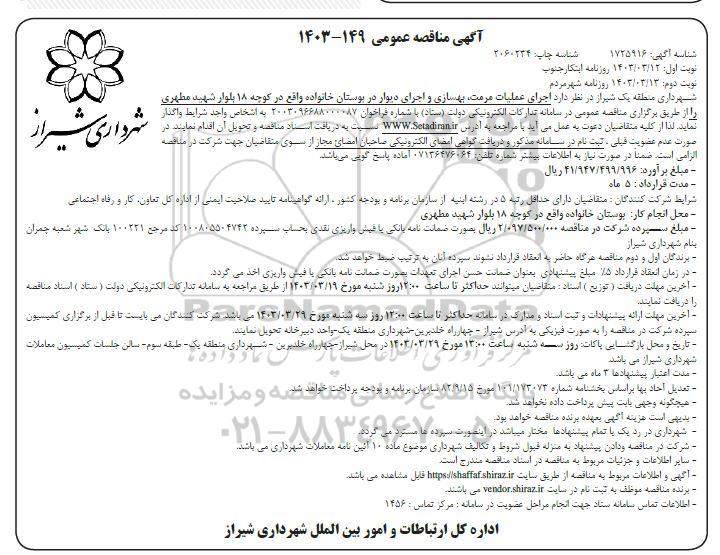 آگهی مناقصه عمومی ۱۴۹-۱۴۰۳
شناسه آگهی: ۱۷۲۵۹۱۶ شناسه چاپ: ۲۰۶۰۲۳۴
نوبت اول: ۱۴۰۳/۰۳/۱۲ روزنامه ابتکارجنوب
نوبت دوم: ۱۴۰۳/۰۳/۱۳ روزنامه شهرمردم
شهرداری شیراز
شهرداری منطقه یک شیراز در نظر دارد اجرای عملیات مرمت، بهسازی و اجرای دیوار در بوستان خانواده واقع در کوچه ۱۸ بلوار شهید مطهری
را از طریق برگزاری مناقصه عمومی در سامانه تدارکات الکترونیکی دولت (ستاد) با شماره فراخوان ۲۰۰۳۰۹۶۶۸۸۰۰۰۰۸۷ به اشخاص واجد شرایط واگذار
نماید. لذا از کلیه متقاضیان دعوت به عمل می آید با مراجعه به آدرس WWW.Setadiran.ir نسبت به دریافت اسناد مناقصه و تحویل آن اقدام نمایند. در
صورت عدم عضویت قبلی ، ثبت نام در سامانه مذکور و دریافت گواهی امضای الکترونیکی صاحبان امضائ مجاز از سوی متقاضیان جهت شرکت در مناقصه
الزامی است. ضمنا در صورت نیاز به اطلاعات بیشتر شماره تلفن: ۰۷۱۳۶۴۷۶۰۶۴ آماده پاسخ گویی می‌باشد.
- مبلغ برآورد: ۴۱/۹۴۷/۴۹۹/۹۹۶ ریال
- مدت قرارداد : ۵ ماه
شرایط شرکت کنندگان : متقاضیان دارای حداقل رتبه ۵ در رشته ابنیه از سازمان برنامه و بودجه کشور ، ارائه گواهینامه تایید صلاحیت ایمنی از اداره کل تعاون، کار و رفاه اجتماعی
- محل انجام کار: بوستان خانواده واقع در کوچه ۱۸ بلوار شهید مطهری
- مبلغ سپرده شرکت در مناقصه ۲/۰۹۷/۵۰۰/۰۰۰ ریال بصورت ضمانت نامه بانکی یا فیش واریزی نقدی بحساب سپرده ۱۰۰۸۰۵۵۰۴۷۴۲ کد مرجع ۱۰۰۲۲۱ بانک شهر شعبه چمران
بنام شهرداری شیراز
- برندگان اول و دوم مناقصه هرگاه حاضر به انعقاد قرارداد نشوند سپرده آنان به ترتیب ضبط خواهد شد.
- در زمان انعقاد قرارداد ۵٪ مبلغ پیشنهادی بعنوان ضمانت حسن اجرای تعهدات بصورت ضمانت نامه بانکی یا فیش واریزی اخذ می گردد.
- آخرین مهلت دریافت ( توزیع ) اسناد : متقاضیان میتوانند حداکثر تا ساعت ۱۳:۰۰روز شنبه مورخ ۱۴۰۳/۰۳/۱۹ از طریق مراجعه به سامانه تدارکات الکترونیکی دولت ( ستاد ) اسناد مناقصه
را دریافت نمایند.
- آخرین مهلت ارائه پیشنهادات و ثبت اسناد و مدارک در سامانه حداکثر تا ساعت ۱۳:۰۰ روز سه شنبه مورخ ۱۴۰۳/۰۳/۲۹ می باشد. شرکت کنندگان می بایست تا قبل از برگزاری کمیسیون
سپرده شرکت در مناقصه را به صورت فیزیکی به آدرس شیراز - چهارراه خلدبرین-شهرداری منطقه یک-واحد دبیرخانه تحویل نمایند.
- تاریخ و محل بازگشایی پاکات: روز سه شنبه ساعت ۱۳:۰۰ مورخ ۱۴۰۳/۰۳/۲۹ در محل شیراز-چهارراه خلدبرین - شهرداری منطقه یک- طبقه سوم- سالن جلسات کمیسیون معاملات
شهرداری شیراز می باشد.
- مدت اعتبار پیشنهادها ۳ ماه می باشد.
- تعدیل آحاد بها براساس بخشنامه شماره ۱۰۱/۱۷۳۰۷۳ مورخ ۸۲/۹/۱۵ سازمان برنامه و بودجه پرداخت خواهد شد.
- هیچگونه وجهی بابت پیش پرداخت داده نخواهد شد.
- بدیهی است هزینه آگهی بعهده برنده مناقصه خواهد بود.
- شهرداری در رد یک یا تمام پیشنهادها مختار میباشد در اینصورت سپرده ها مسترد می گردد.
- شرکت در مناقصه ودادن پیشنهاد به منزله قبول شروط و تکالیف شهرداری موضوع ماده ۱۰ آئین نامه معاملات شهرداری می باشد.
- سایر اطلاعات و جزئیات مربوط به مناقصه در اسناد مناقصه مندرج است.
- آگهی و اطلاعات مربوط به مناقصه از طریق سایت https://shaffaf.shiraz.ir قابل مشاهده می باشد.
- برنده مناقصه موظف به ثبت نام در سایت vendor.shiraz.ir می باشند.
- اطلاعات تماس سامانه ستاد جهت انجام مراحل عضویت در سامانه : مرکز تماس : ۱۴۵۶
اداره کل ارتباطات و امور بین الملل شهرداری شیراز
ParsNamadData
۰۲۱-۸۸۳۴۹۶۷۰-۵